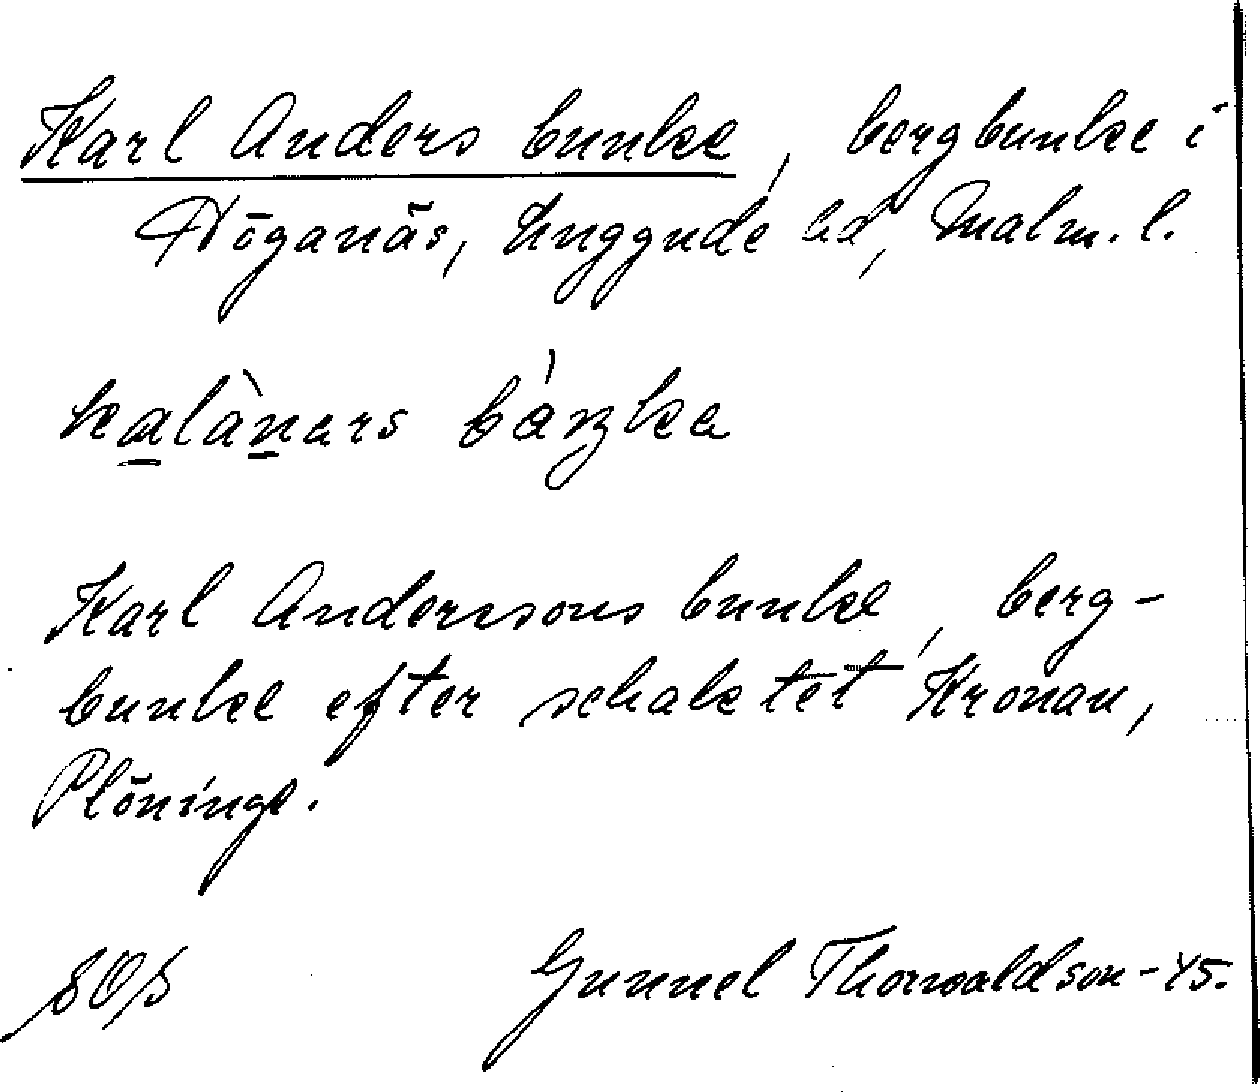 Karl Anders bunke, bergbunke i
Höganäs, Luggude hd, Malm. l.
Karl Anderssons bunke, berg-
bunke efter schaktet Kronan,
Plöninge.
Gunnel Thorvaldson -45.